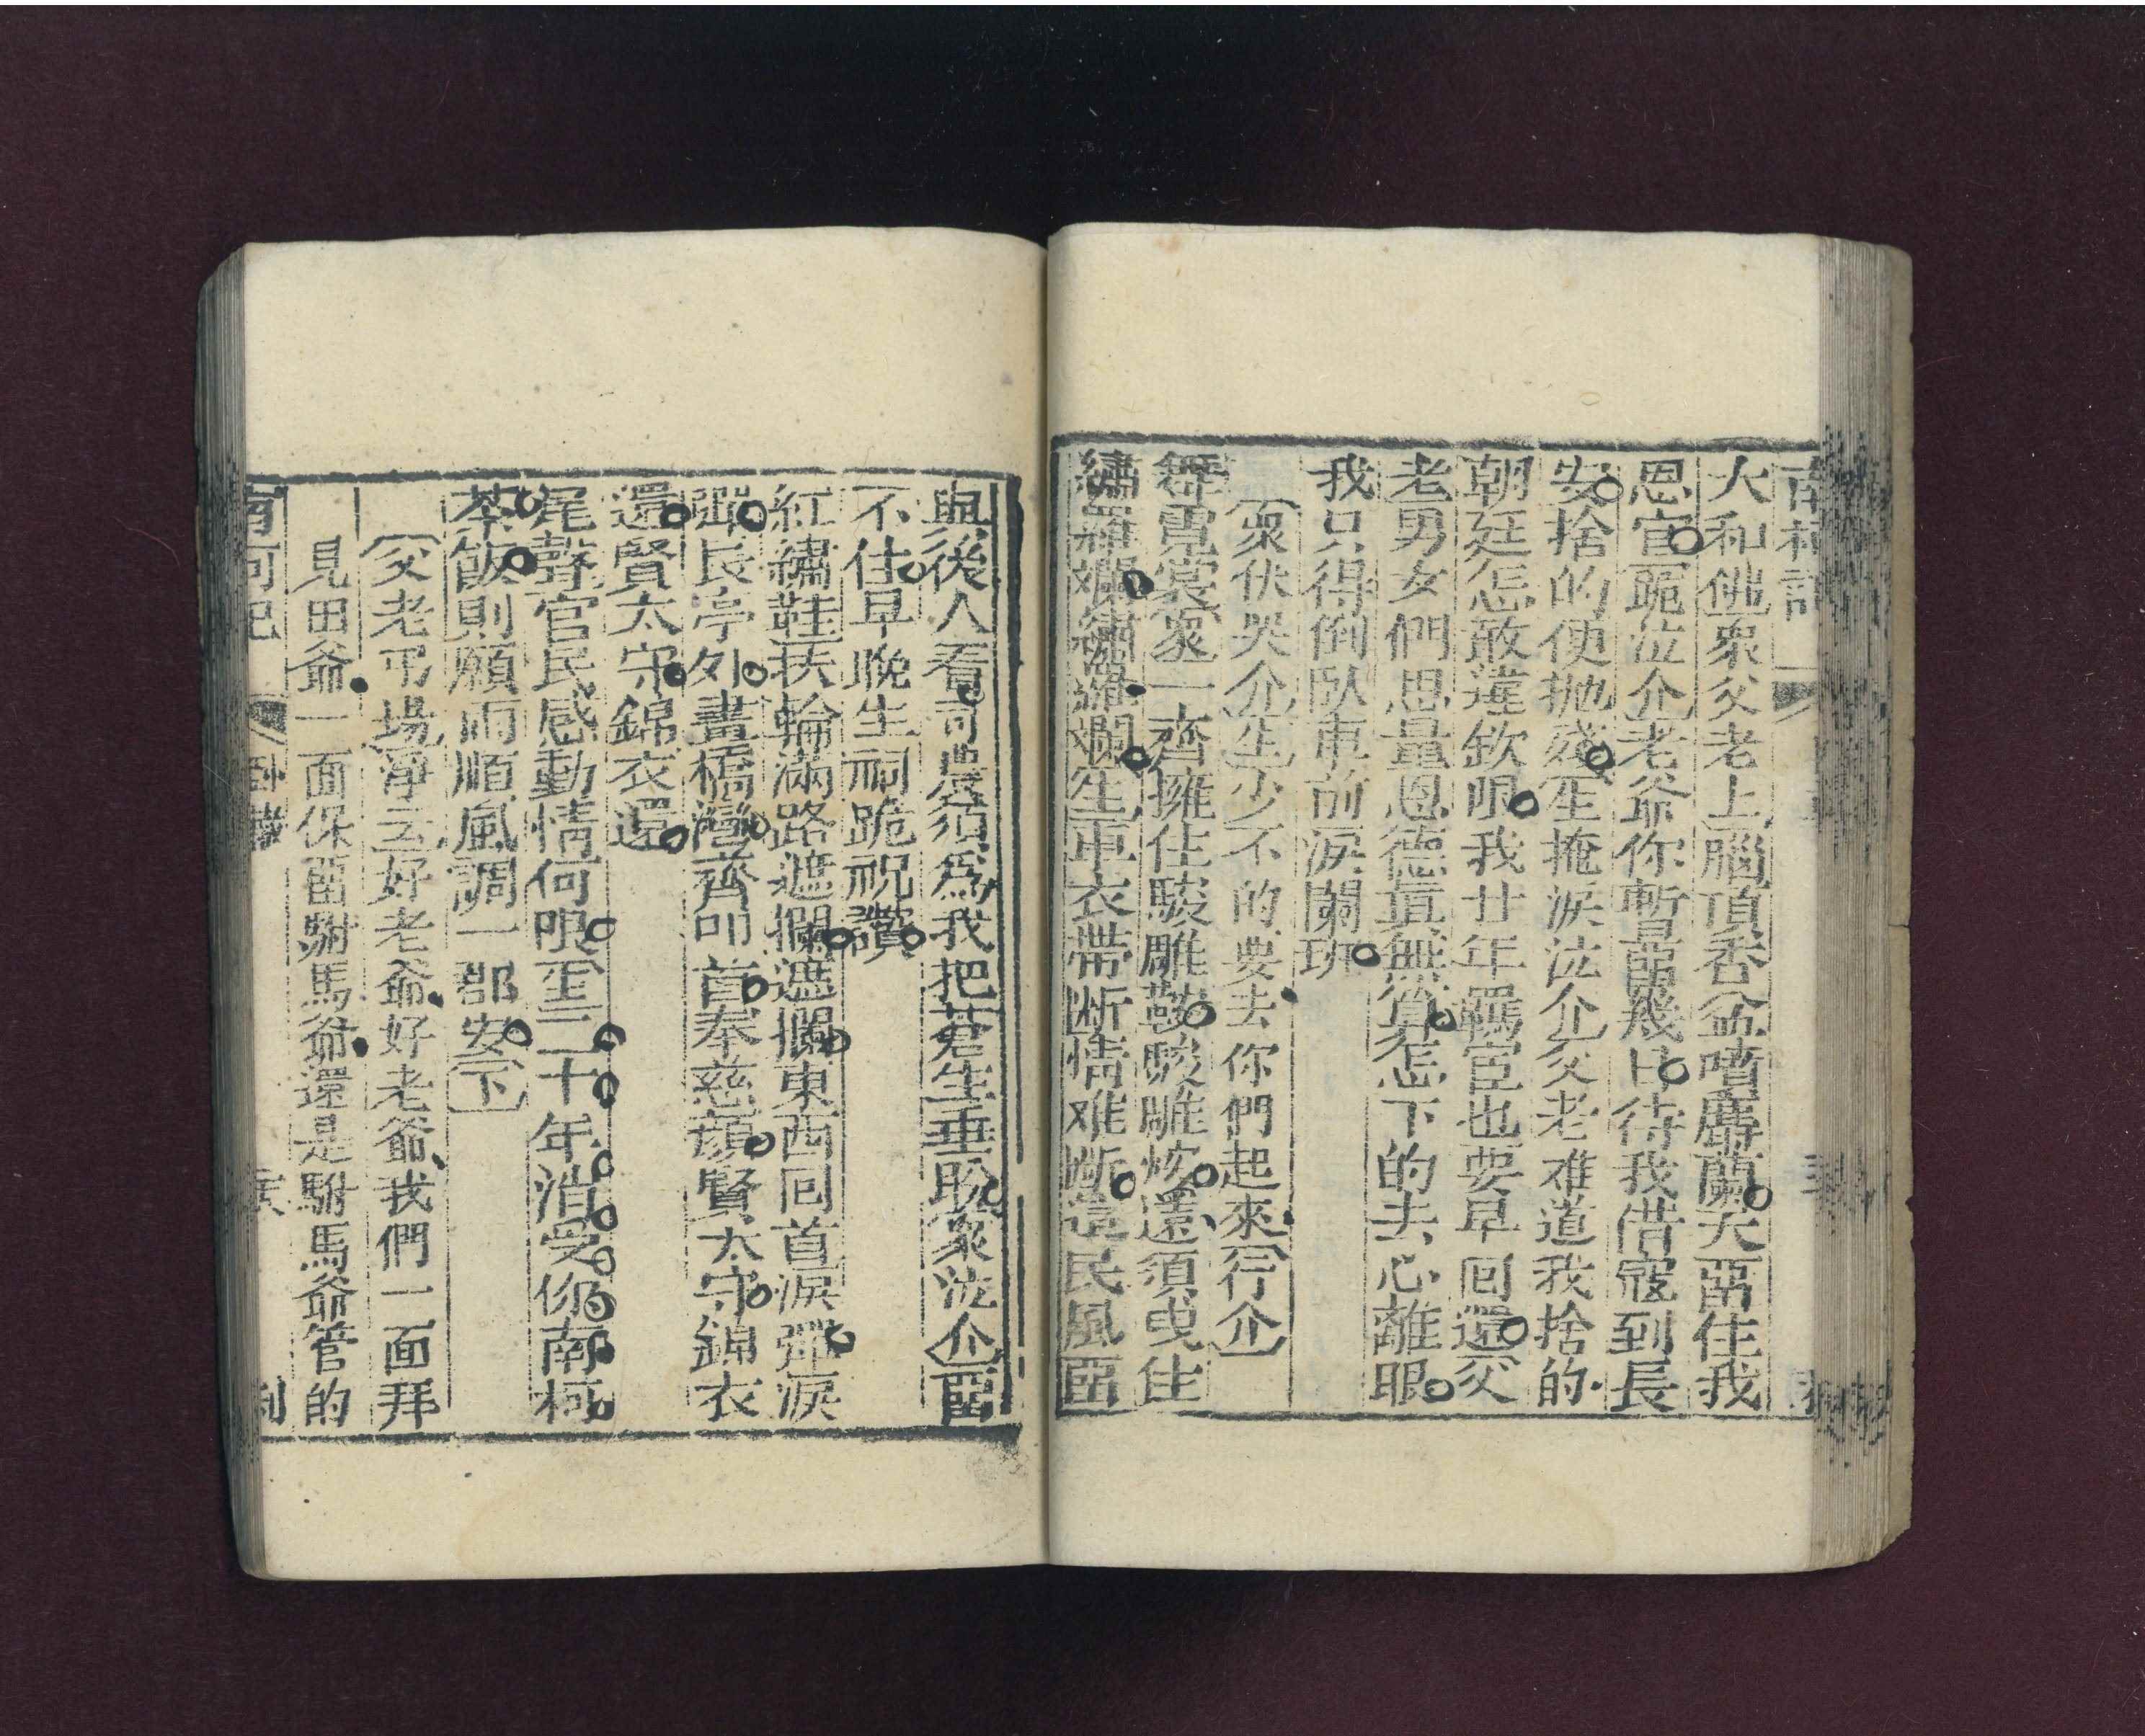 南柯記
大和佛衆父老上腦頂香盆噴麝蘭天畱住我
恩官跪泣介老爺你暫畱幾日待我借寇到長
安捨的便抛殘生掩淚泣介父老难道我捨的
朝廷怎敢違欽限我廿年羈宦也要早回還父
老男女們思量恩德眞無算怎下的去心離眼
我只得倒臥車前淚闌珊
衆伏哭介生少不的要去你們起來行介
舞霓裳衆一齊擁住駿雕鞍駿雕鞍還須曳住
繡羅襴繡羅襴生車衣帶断情难断這民風畱
與後人看司農須爲我把蒼生垂盼衆泣介畱
不住早晚生祠跪祝讚
紅繡鞋扶輪滿路遮攔遮攔東西回首淚彈淚
彈長亭外畫橋灣齊叩首奉慈顔賢太守錦衣
還賢太守錦衣還
尾聲官民感動情何限生二十年消受你南柯
茶飯則願雨順風調一郡安下
父老弔場淨云好老爺好老爺我們一面拜
見田爺一面保畱駙馬爺還是駙馬爺管的
南柯記